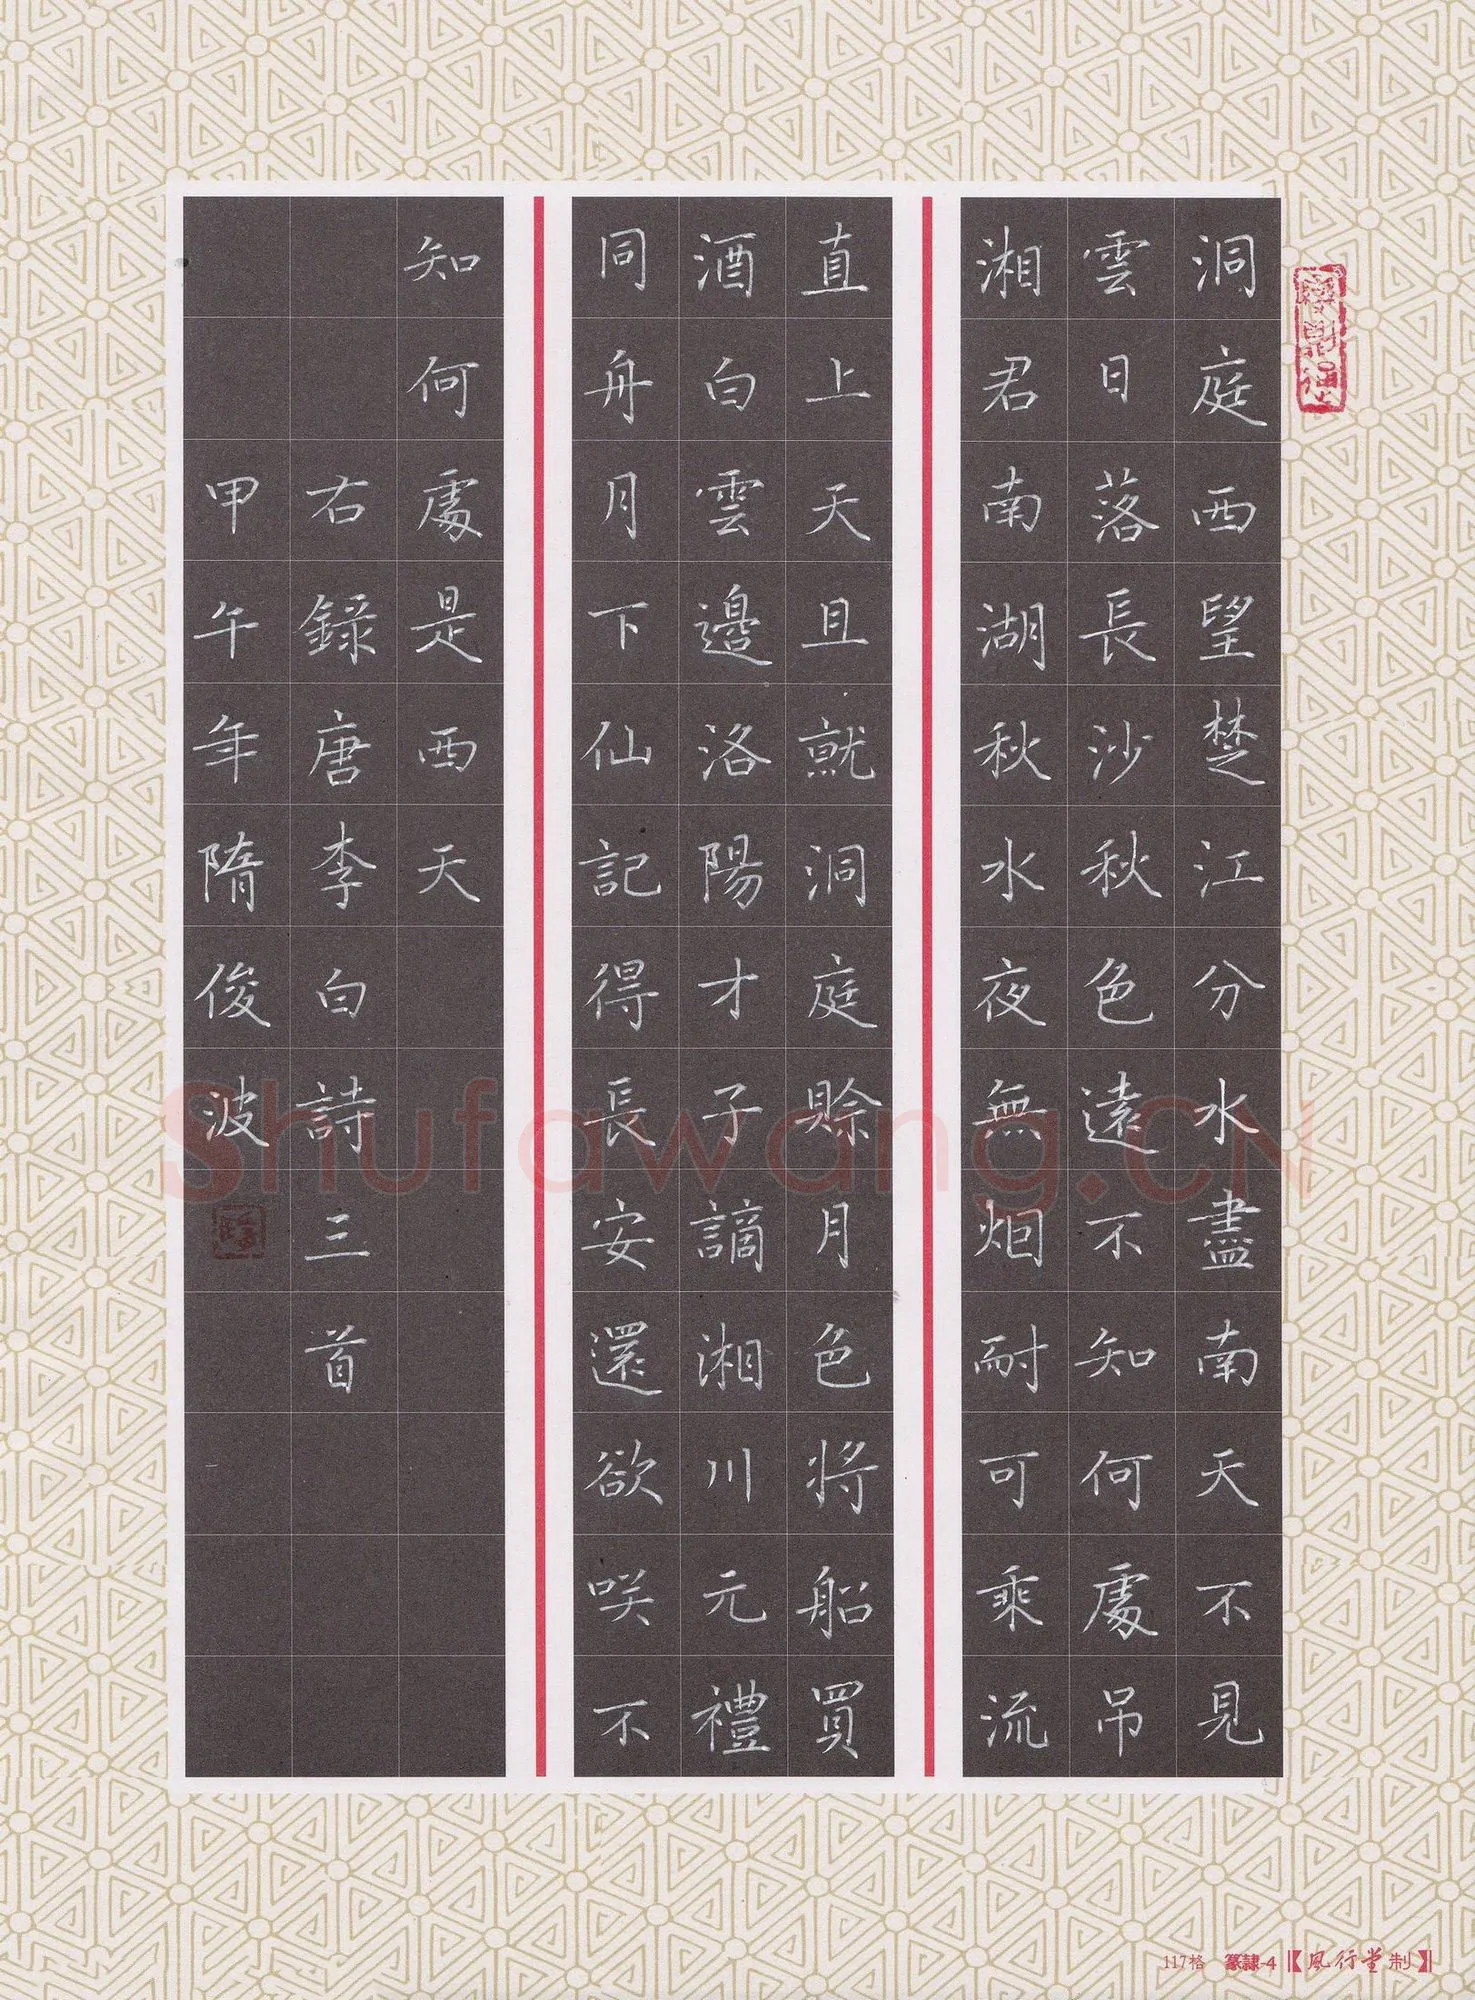 洞庭西望楚江分水盡南天不見
雲日落長沙秋色遠不知何處吊
湘君南湖秋水夜無烟耐可乘流
直上天且就洞庭月賒月色將船買
酒白雲邊洛陽才子謫湘川元禮
同舟月下仙記得長安還欲咲不
知何處是西天
右錄唐李白詩三首
甲午年隋俊波
Shufawang.CN
117格 篆隸-4【風行堂制】